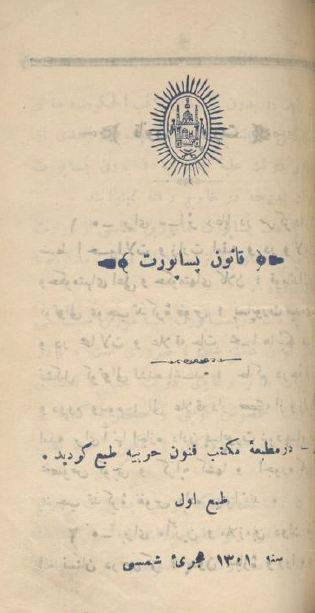 ﴿ قانون پساپورت ﴾
- درمطبعهٔ مکتب فنون حربیه طبع گردید .
طبع اول
سنهٔ ۱۳۰۱ هجریٔ شمسی